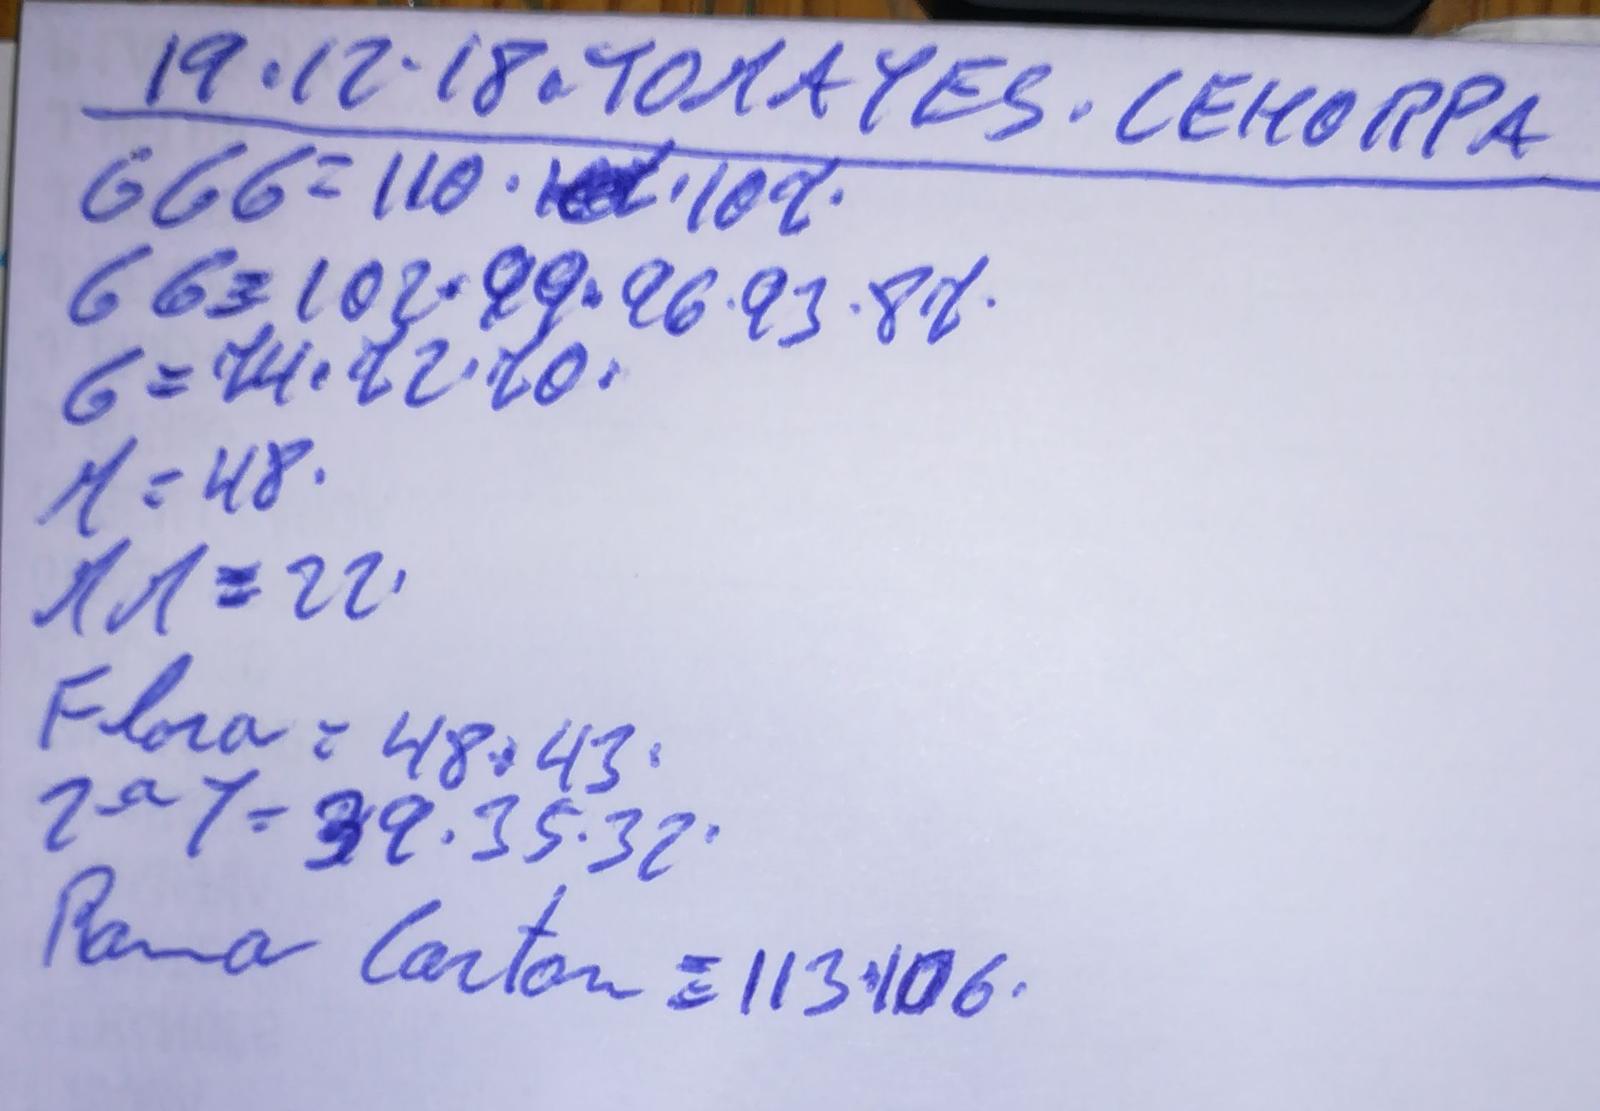 19.12.18. TOMATES. CEHORPA
GGG = 110. 107.
GG = 102. 99. 96. 93. 87.
G = 74. 72. 70.
M = 48.
MM = 22.
Flora = 48. 43.
2ª T = 39. 35. 32.
Rama Carton = 113. 106.